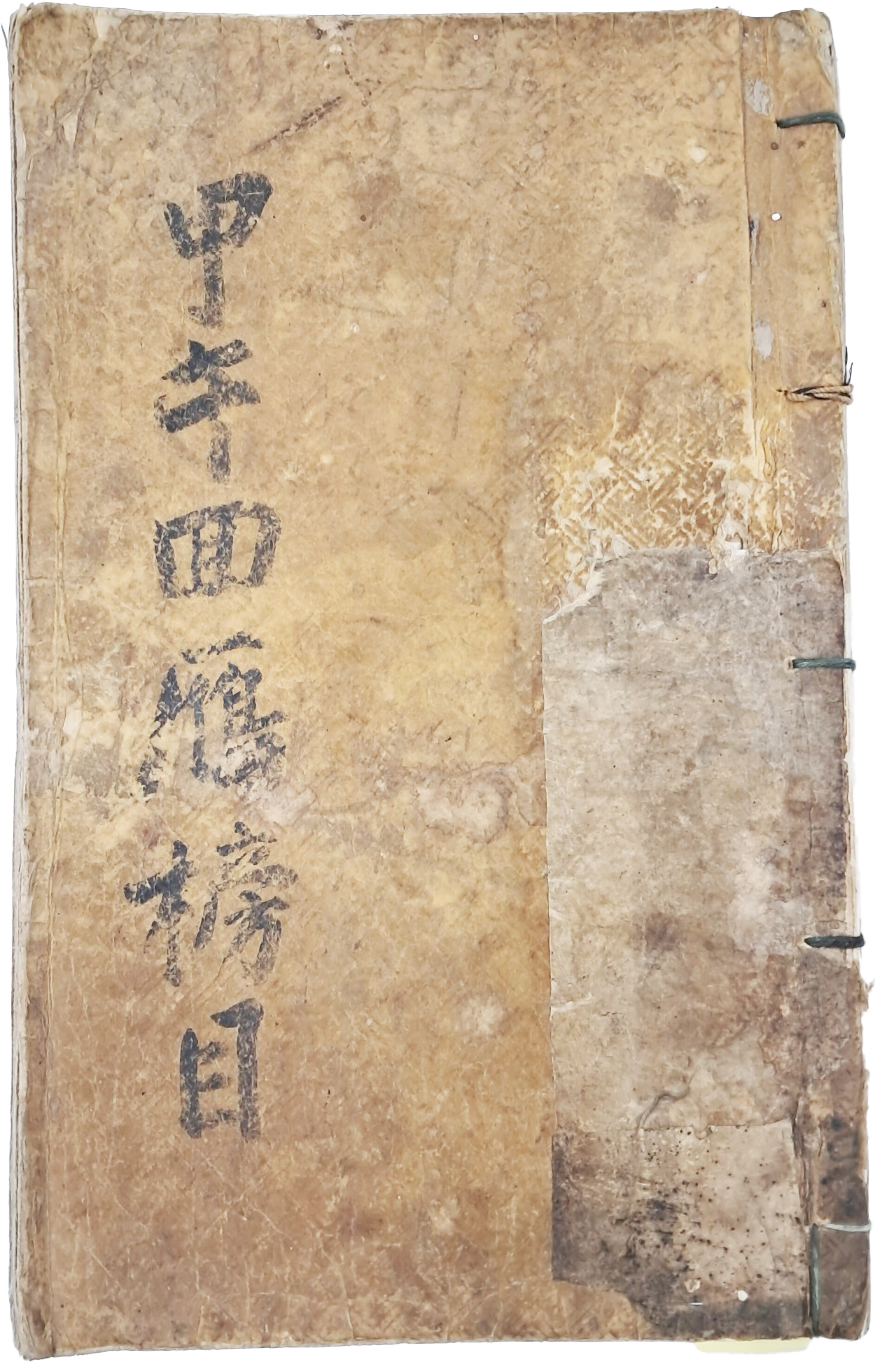 甲午囬鴈榜目